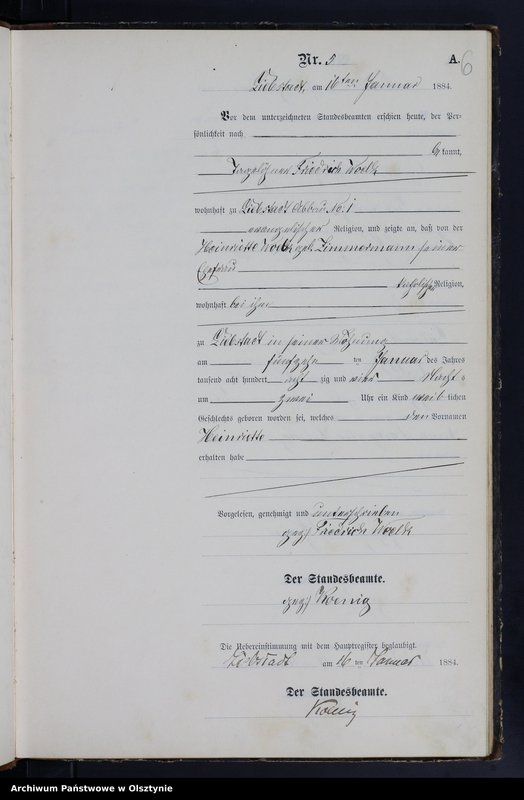 Nr. 5
A.
6
Liebstadt, am 16ten Januar 1884.
Vor dem unterzeichneten Standesbeamten erschien heute, der Per-
sönlichkeit nach
kannt,
Tagelöhner Friedrich Woelk
wohnhaft zu Liebstadt Abbau No. 1
evangelischer Religion, und zeigte an, daß von der
Henriette Woelk geb. Zimmermann seiner
Ehefrau
Religion,
wohnhaft bei ihm
zu Liebstadt in seiner Wohnung
am fünfzehn ten Januar des Jahres
tausend acht hundert acht zig und vier Nachts
um zwei Uhr ein Kind weib lichen
Geschlechts geboren worden sei, welches den Vornamen
Henriette
erhalten habe
Vorgelesen, genehmigt und unterschrieben
gez. Friedrich Woelk
Der Standesbeamte.
gez. Koenig
Die Uebereinstimmung mit dem Hauptregister beglaubigt.
Liebstadt am 16 ten Januar 1884.
Der Standesbeamte.
Koenig
Archiwum Państwowe w Olsztynie